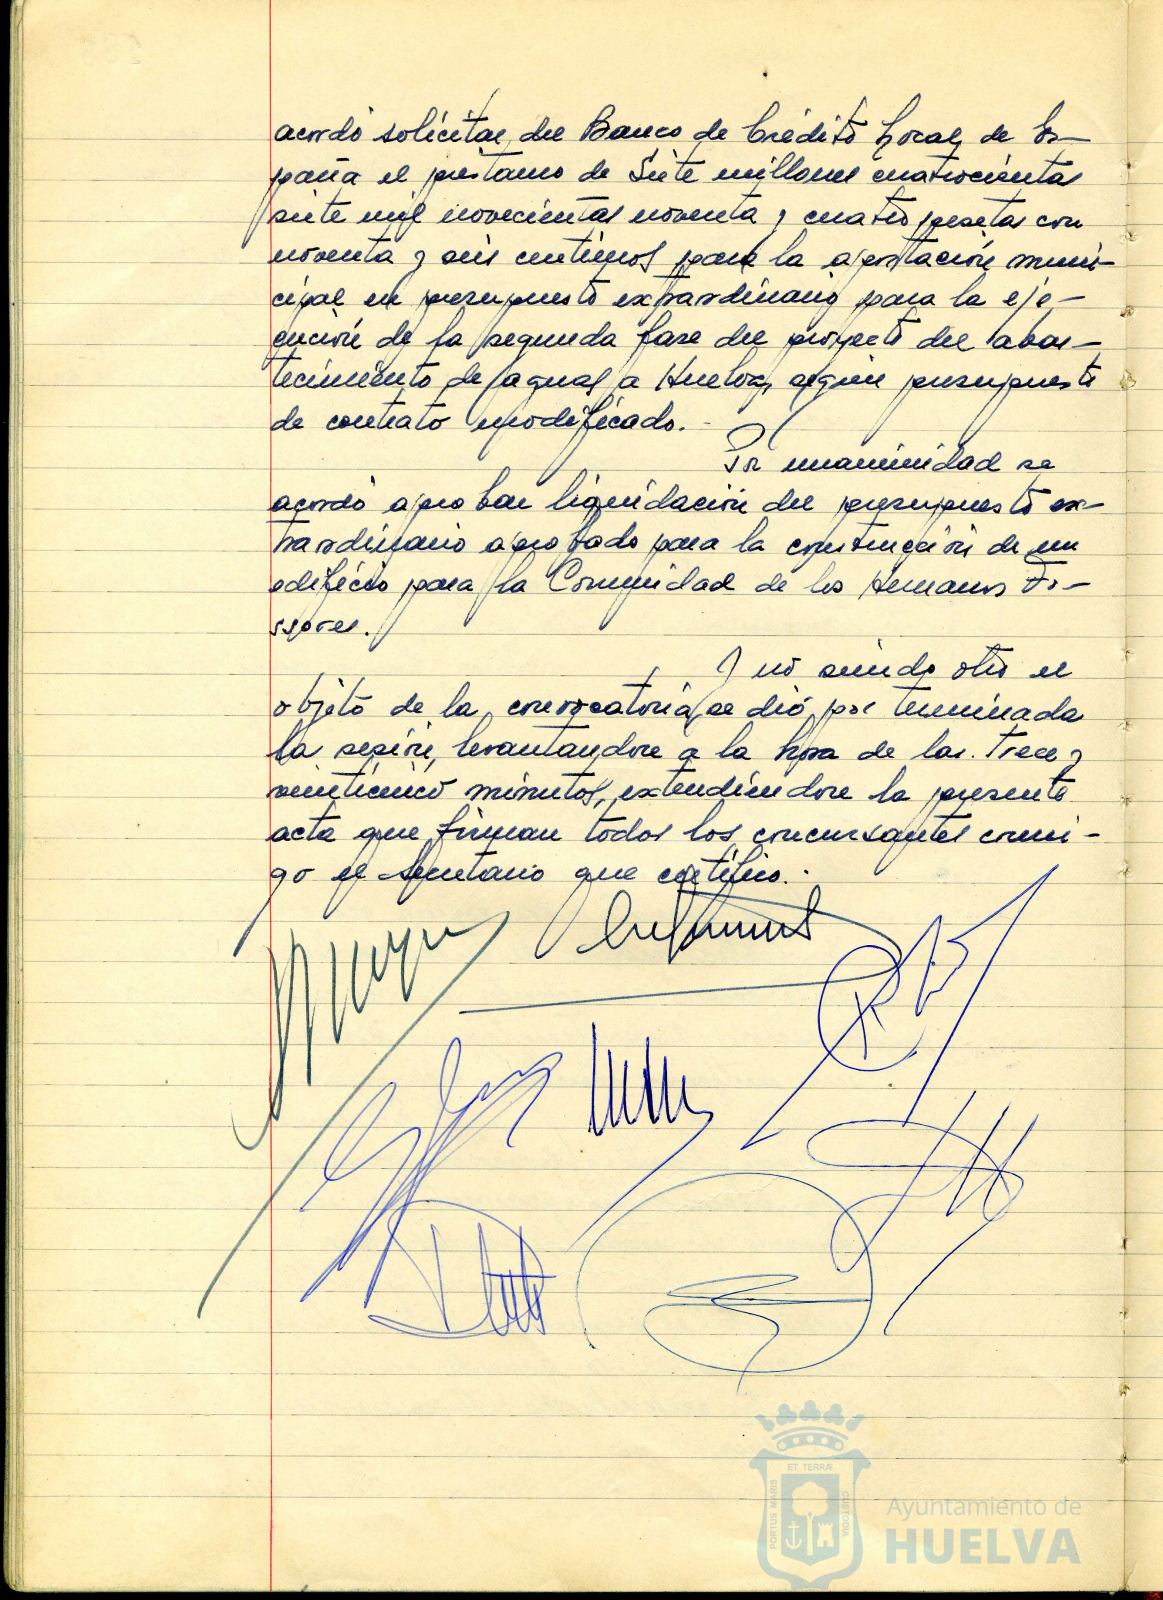 acordó solicitar del Banco de Crédito Local de Es-
paña el préstamo de Siete millones cuatrocientas
siete mil novecientas noventa y cuatro pesetas con
noventa y seis centimos para la aportación muni-
cipal en presupuesto extraordinario para la eje-
cución de la segunda fase del proyecto del abas-
tecimiento de aguas a Huelva, según presupuesto
de contrato modificado.-
Por unanimidad se
acordó aprobar liquidación del presupuesto ex-
traordinario aprobado para la construcción de un
edificio para la Comunidad de los Hermanos Fo-
ssores.
Y no siendo otro el
objeto de la convocatoria, se dió por terminada
la sesión, levantandose a la hora de las trece y
veinticinco minutos, extendiendose la presente
acta que firman todos los concursantes conmi-
go el Secretario que certifico.-
ET TERRÆ
PORTUS MARIS
CUSTODIA
Ayuntamiento de
HUELVA